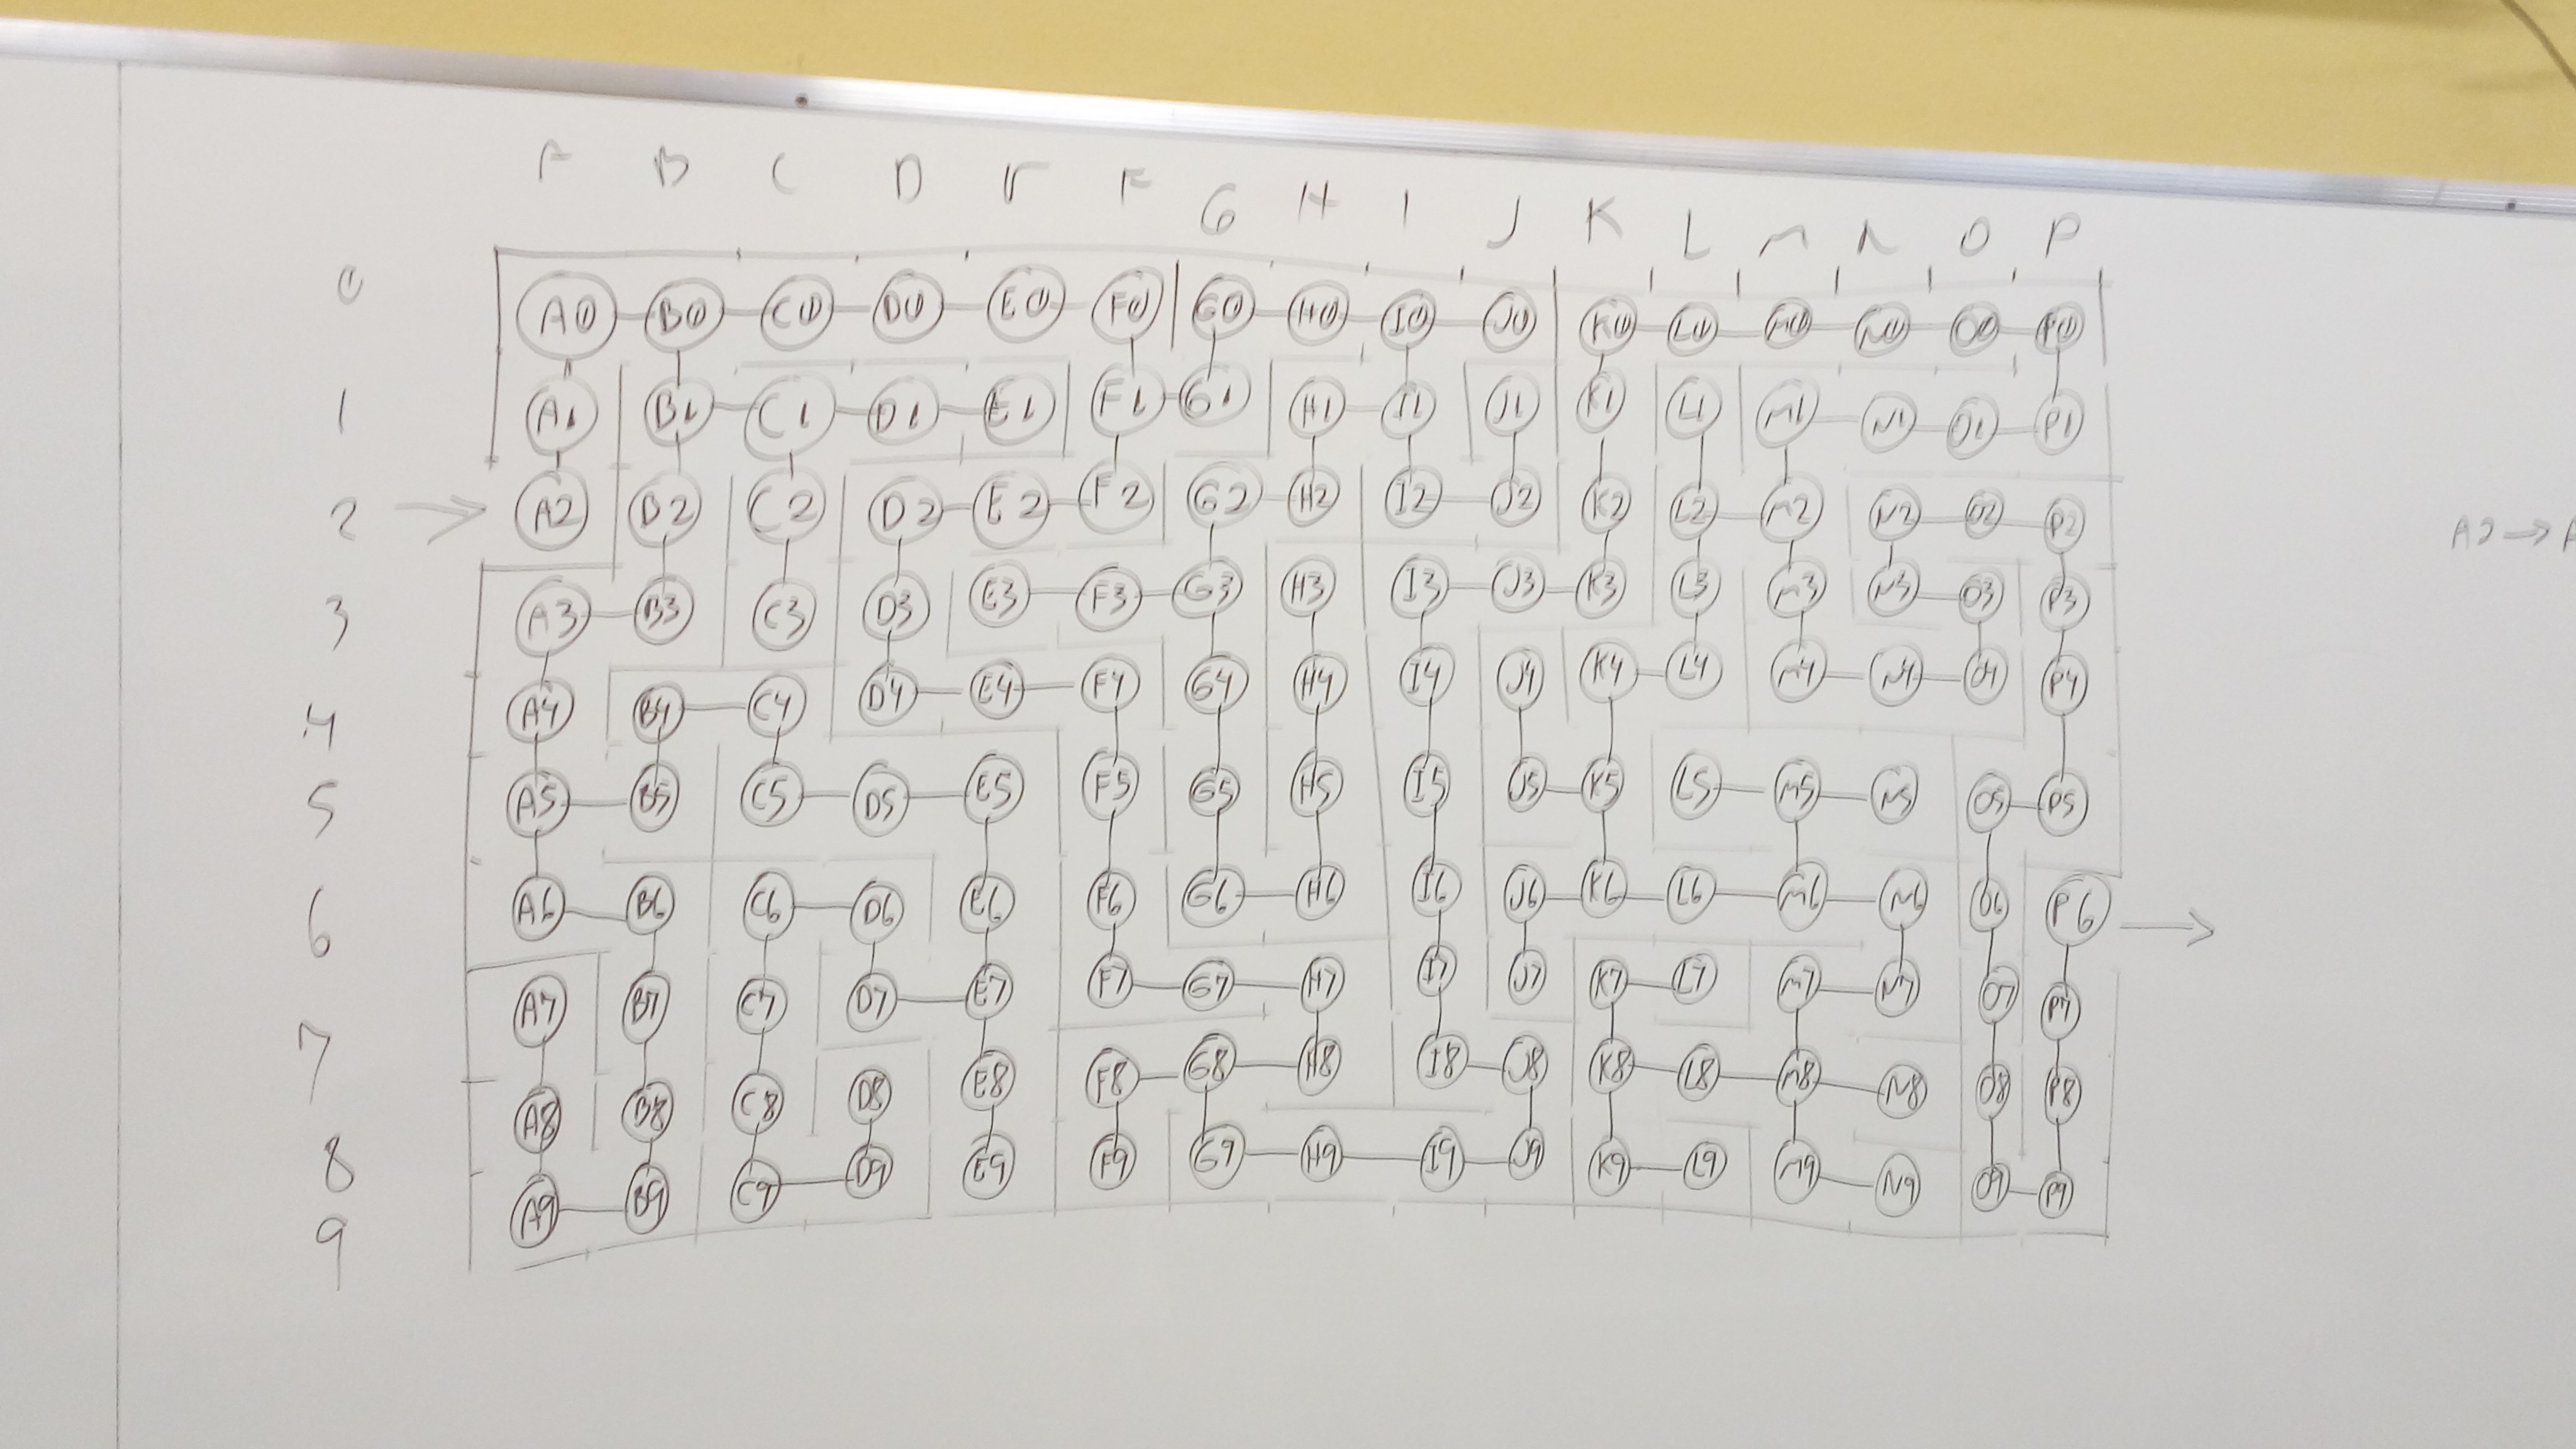 A B C D E F G H I J K L M N O P
0 A0 B0 C0 D0 E0 F0 G0 H0 I0 J0 K0 L0 M0 N0 O0 P0
1 A1 B1 C1 D1 E1 F1 G1 H1 I1 J1 K1 L1 M1 N1 O1 P1
2 A2 B2 C2 D2 E2 F2 G2 H2 I2 J2 K2 L2 M2 N2 O2 P2 A2→
3 A3 B3 C3 D3 E3 F3 G3 H3 I3 J3 K3 L3 M3 N3 O3 P3
4 A4 B4 C4 D4 E4 F4 G4 H4 I4 J4 K4 L4 M4 N4 O4 P4
5 A5 B5 C5 D5 E5 F5 G5 H5 I5 J5 K5 L5 M5 N5 O5 P5
6 A6 B6 C6 D6 E6 F6 G6 H6 I6 J6 K6 L6 M6 N6 O6 P6
7 A7 B7 C7 D7 E7 F7 G7 H7 I7 J7 K7 L7 M7 N7 O7 P7
8 A8 B8 C8 D8 E8 F8 G8 H8 I8 J8 K8 L8 M8 N8 O8 P8
9 A9 B9 C9 D9 E9 F9 G9 H9 I9 J9 K9 L9 M9 N9 O9 P9